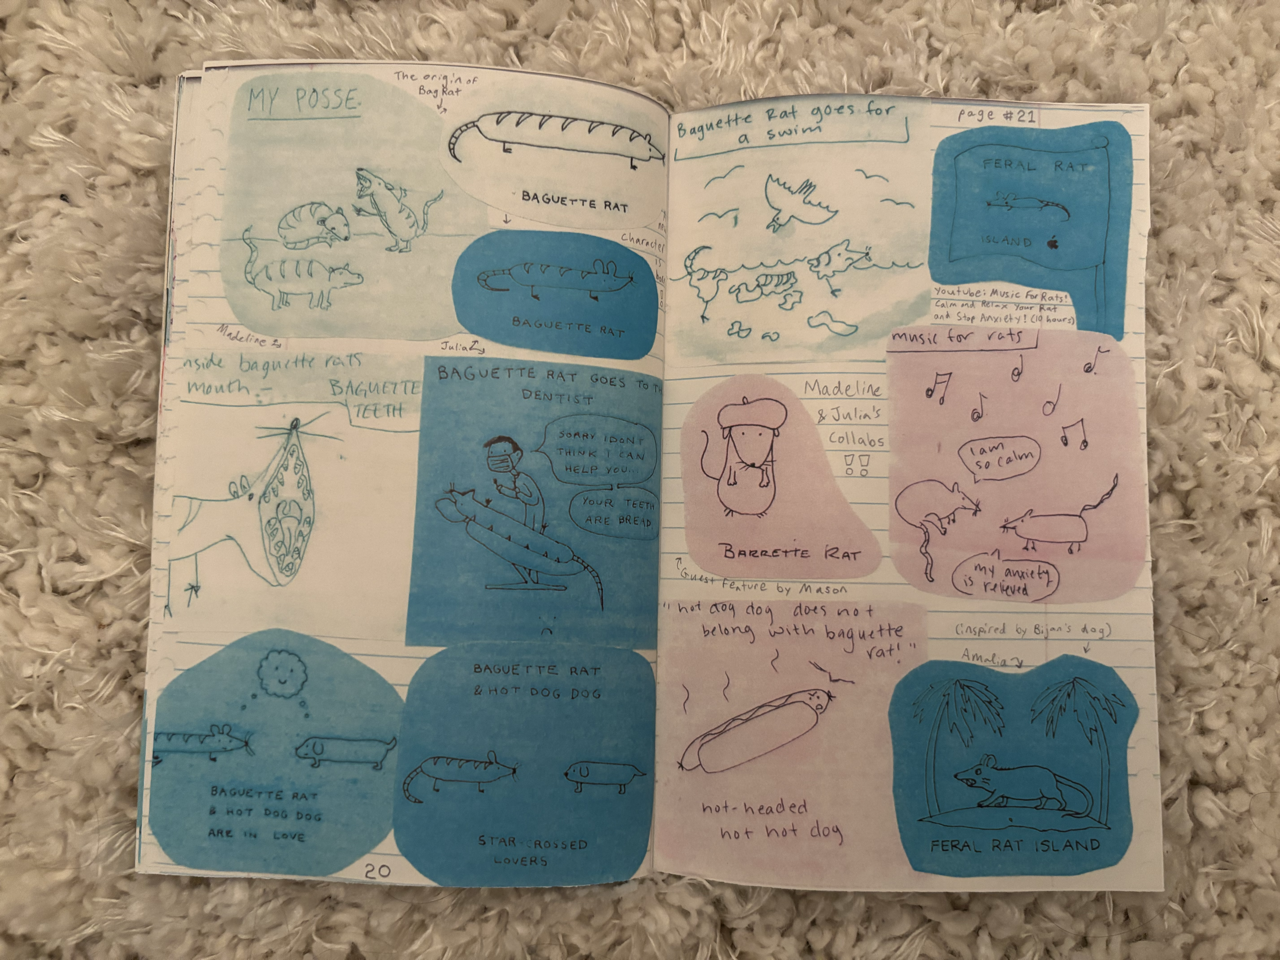 The origin of
BagRat
MY POSSE
BAGUETTE RAT
character
is
BAGUETTE RAT
Madeline
Julia
nside baguette rats
mouth –
BAGUETTE
TEETH
BAGUETTE RAT GOES TO T
DENTIST
SORRY I DON'T
THINK I CAN
HELP YOU...
YOUR TEETH
ARE BREAD
BAGUETTE RAT
& HOT DOG DOG
ARE IN LOVE
BAGUETTE RAT
& HOT DOG DOG
STAR-CROSSED
LOVERS
20
Baguette Rat goes for
a swim
page #21
FERAL RAT
ISLAND
Youtube: Music For Rats!
Calm and Relax Your Rat
and Stop Anxiety! (10 hours)
music for rats
Madeline
& Julia's
Collabs
!!
I am
so calm
my anxiety
is relieved
BARRETTE RAT
Guest Feature by Mason
"hot dog dog does not
belong with baguette
rat!"
hot-headed
hot hot dog
(inspired by Bijan's dog)
Amalia
FERAL RAT ISLAND